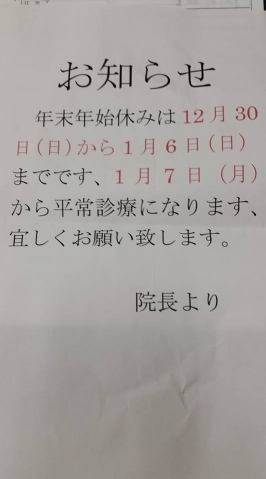 お知らせ
年末年始休みは12月30
日(日)から1月6日(日)
までです、1月7日(月)
から平常診療になります、
宜しくお願い致します。
院長より